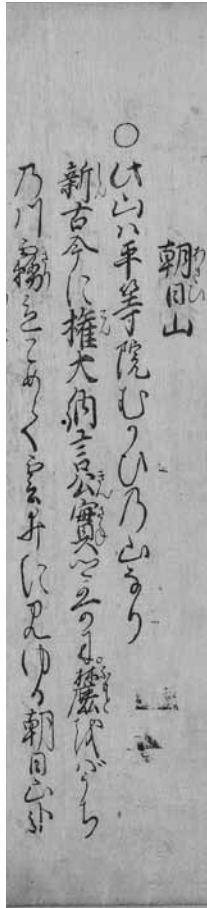 朝日山
○此山ハ平等院むかひ乃山なり
新古今に權大納言公實 麓をばうぢ
乃川霧立こめて雲井に見ゆる朝日山かな